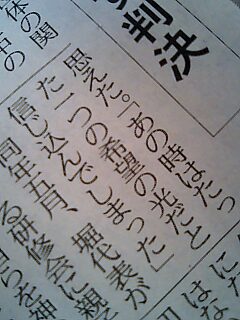 判決
体の関
思えた。「あの時はたっ
た一つの希望の光だと
信じ込んでしまった」
同年五月、堀代表が
る研修会に親